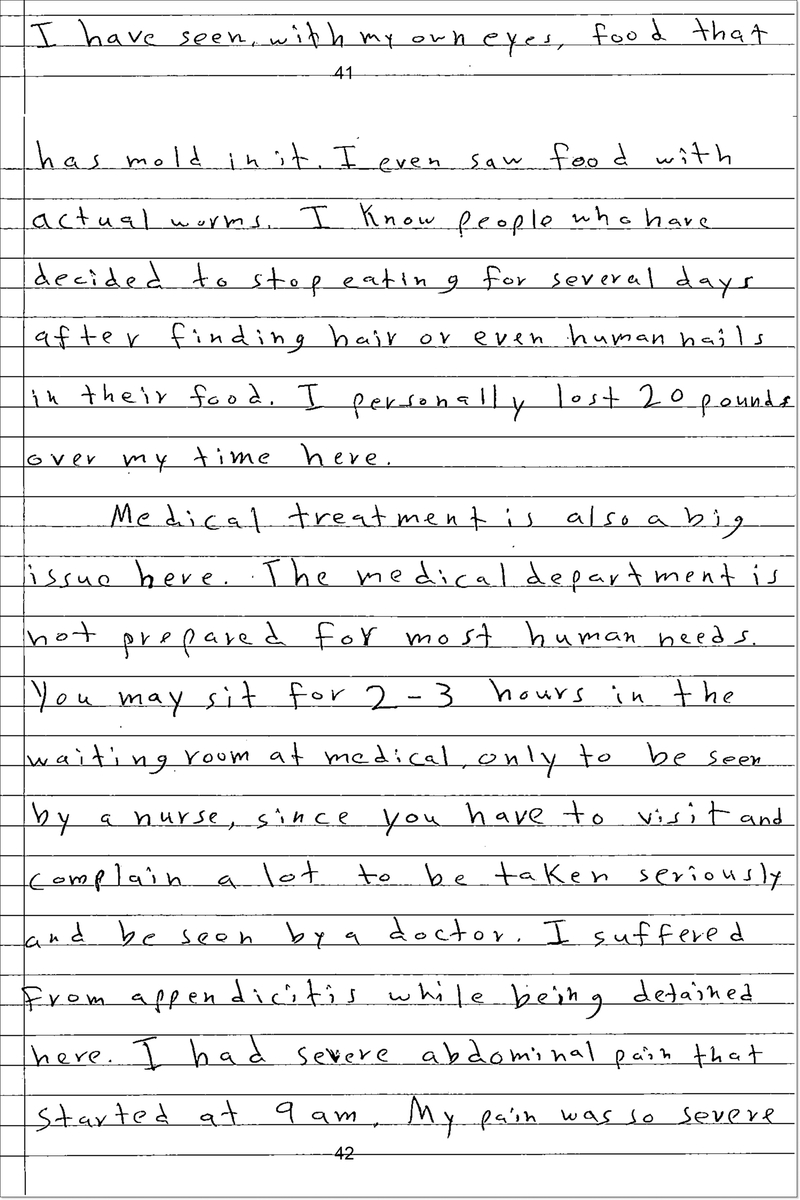 I have seen, with my own eyes, food that
41
has mold in it. I even saw food with
actual worms. I know people who have
decided to stop eating for several days
after finding hair or even human nails
in their food. I personally lost 20 pounds
over my time here.
Medical treatment is also a big
issue here. The medical department is
not prepared for most human needs.
You may sit for 2-3 hours in the
waiting room at medical, only to be seen
by a nurse, since you have to visit and
complain a lot to be taken seriously
and be seen by a doctor. I suffered
from appendicitis while being detained
here. I had severe abdominal pain that
started at 9 am. My pain was so severe
42